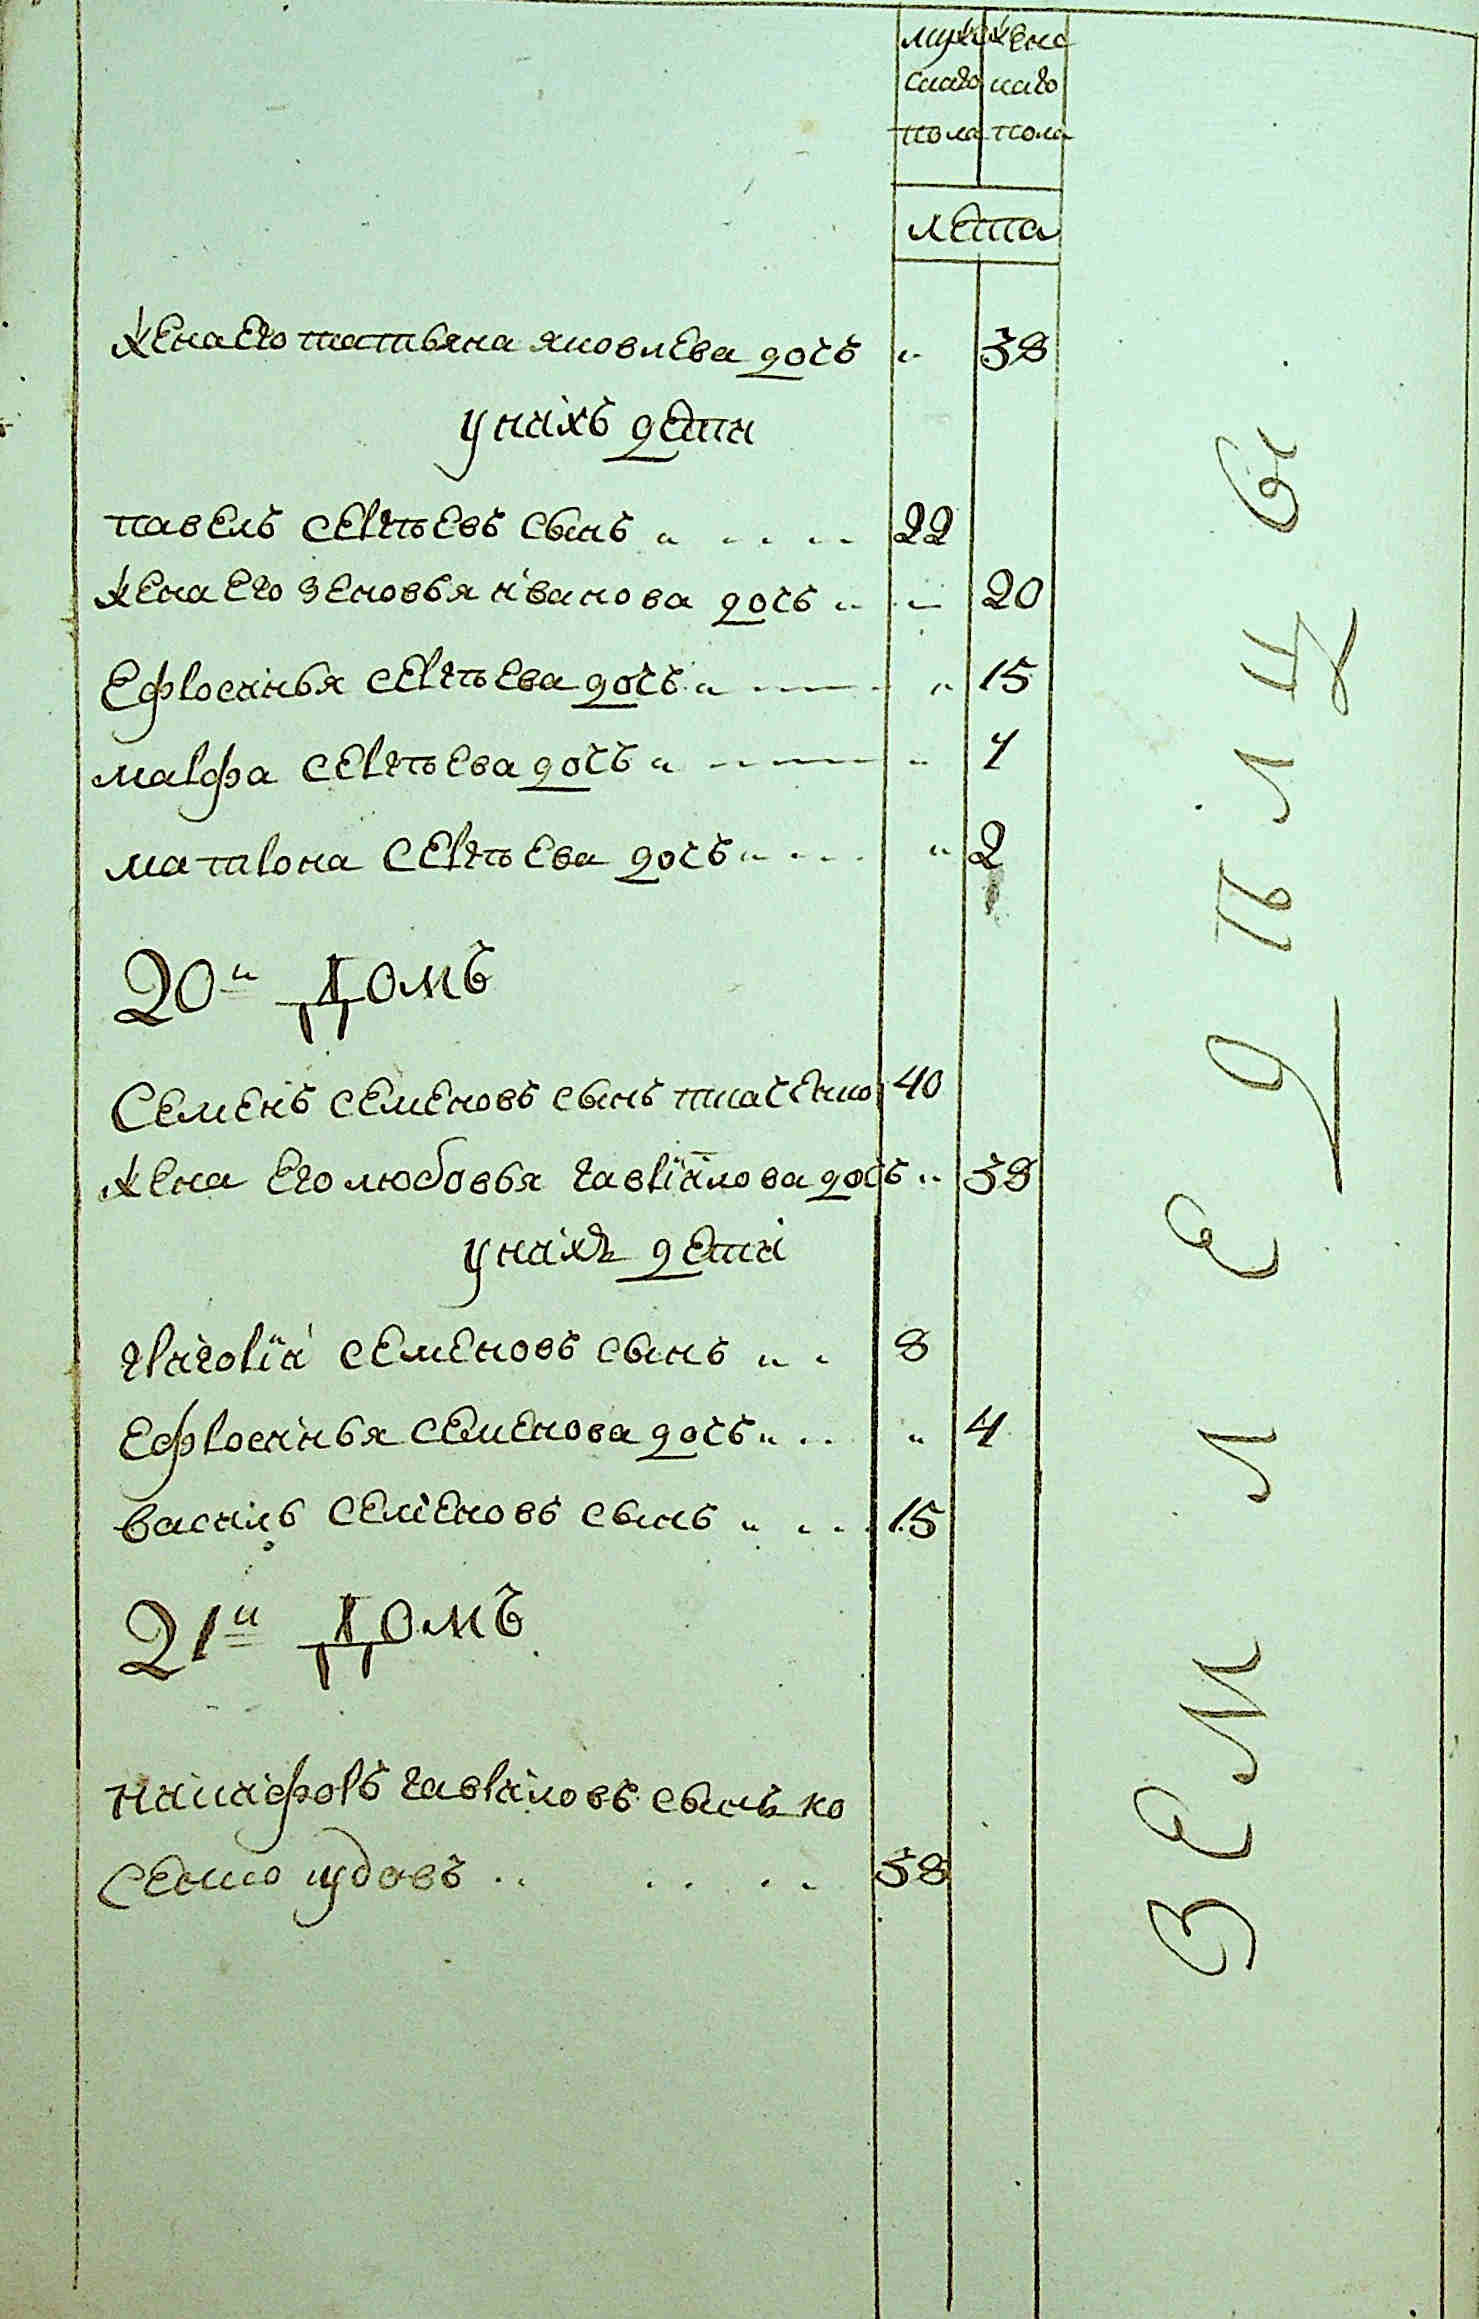 мужскаго пола женскаго пола
лета
жена его татьяна яковлева дочь " 38
у нихъ дети
павелъ сергѣевъ сынъ 22
жена его зеновья иванова дочь 20
Ефросинья сергѣева дочь " 15
марфа сергѣева дочь "
матрона сергѣева дочь " 2
20й Домъ
Семенъ семеновъ сынъ 40
жена его любовья гаврилова дочь " 38
у нихъ дети
григорiй семеновъ сынъ 8
Ефросинья семенова дочь " 4
василь семеновъ сынъ 15
21й Домъ
никифоръ гавриловъ сынъ ко
58
ЗЕМЛЕДѢЛЦЫ